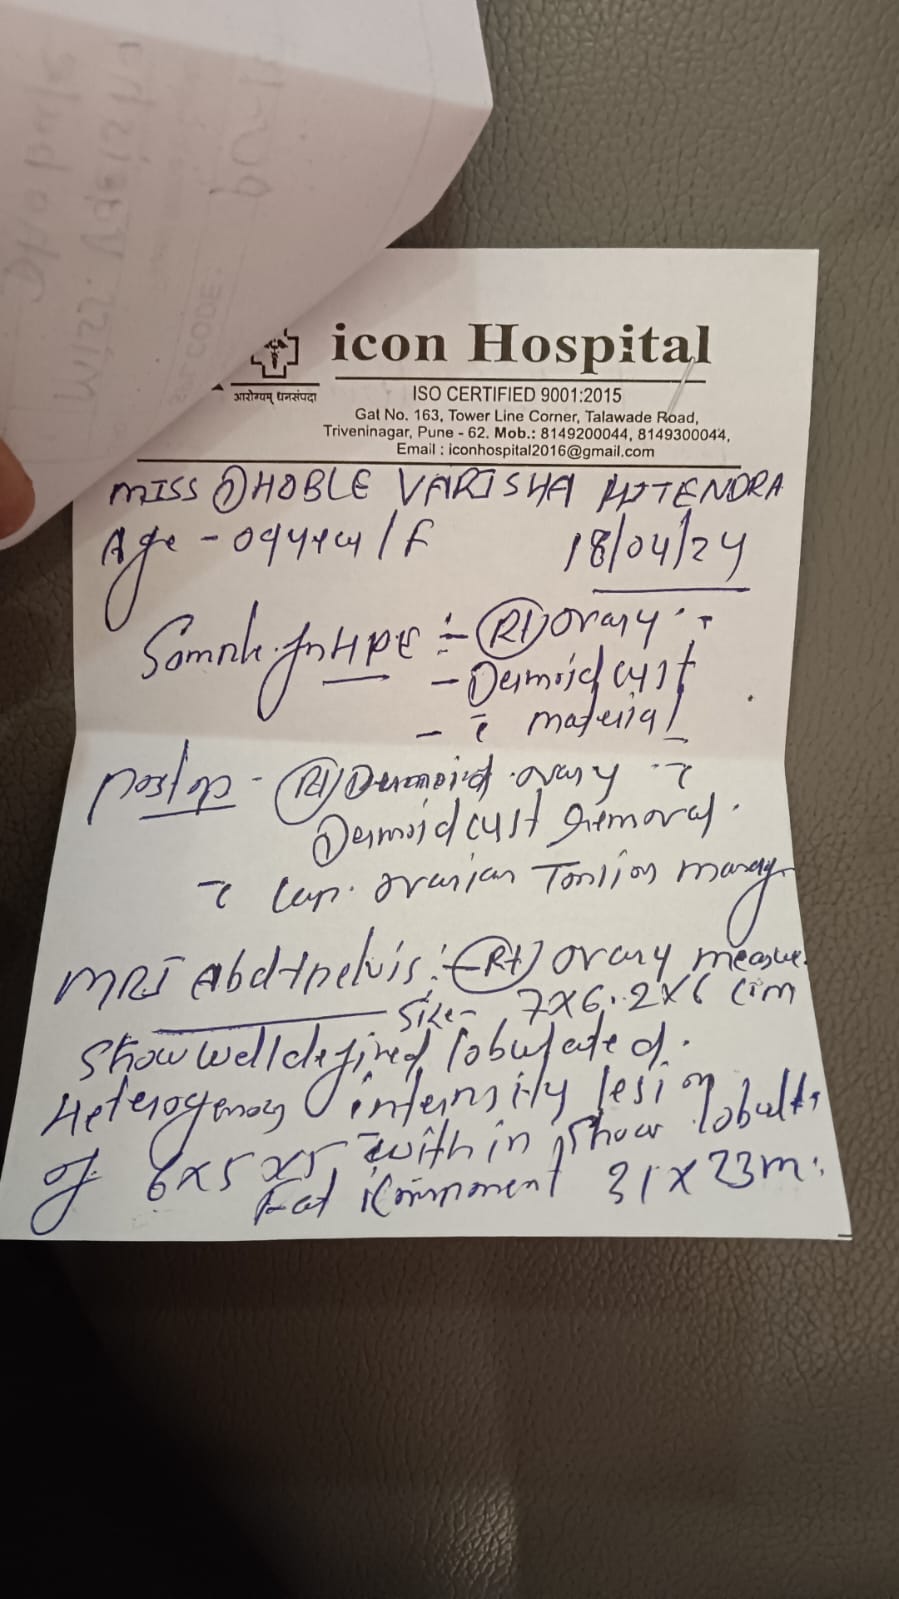 icon Hospital
आरोग्यम् धनसंपदा
ISO CERTIFIED 9001:2015
Gat No. 163, Tower Line Corner, Talawade Road,
Triveninagar, Pune - 62. Mob.: 8149200044, 8149300044,
Email : iconhospital2016@gmail.com
MISS DHOBLE VARISHA HITENDRA
Age - 09 year / F 18/04/24
Sample for HPE :- (Rt) ovary
- Dermoid cyst
- c̄ material
post op - (Rt) Dermoid ovary c̄
Dermoid cyst removal.
c̄ Lap. ovarian Tortion
MRI Abd + pelvis :- (Rt) ovary measure
Size - 7x6.2x6 cm
Show well defined lobulated
Heterogenous intensity lesion
of 6x5x5 within show
Fat component 31x23m
CODE: